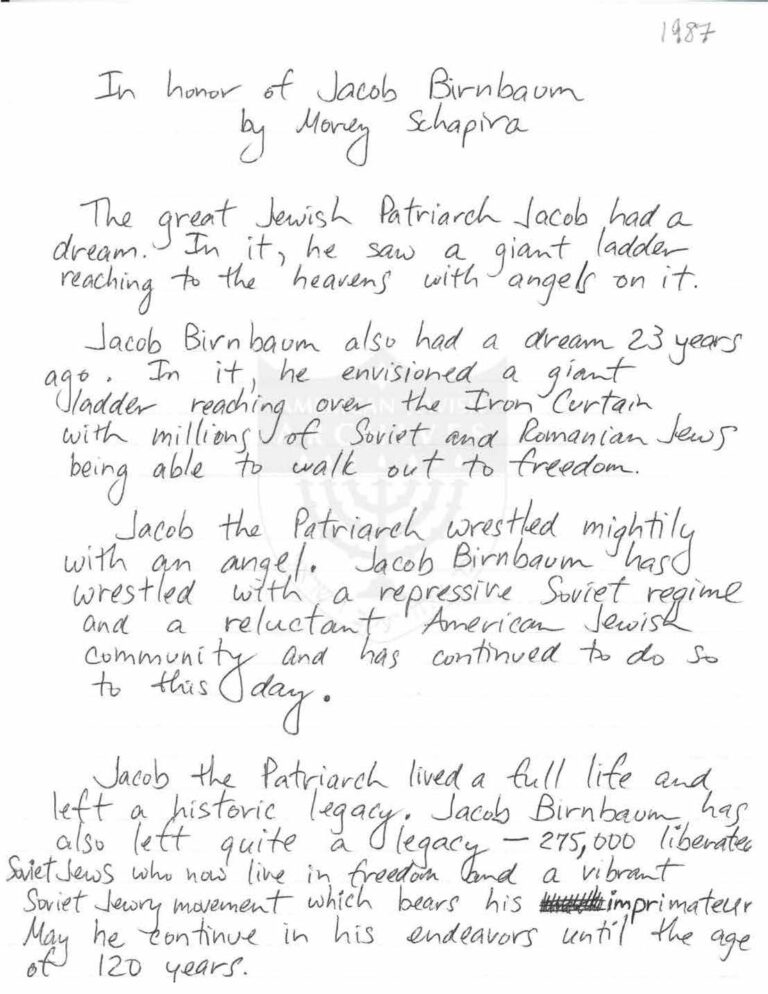 1987
In honor of Jacob Birnbaum
by Morey Schapira
The great Jewish Patriarch Jacob had a
dream. In it, he saw a giant ladder
reaching to the heavens with angels on it.
Jacob Birnbaum also had a dream 23 years
ago. In it, he envisioned a giant
ladder reaching over the Iron Curtain
with millions of Soviet and Romanian Jews
being able to walk out to freedom.
Jacob the Patriarch wrestled mightily
with an angel. Jacob Birnbaum has
wrestled with a repressive Soviet regime
and a reluctant American Jewish
community and has continued to do so
to this day.
Jacob the Patriarch lived a full life and
left a historic legacy. Jacob Birnbaum has
also left quite a legacy — 275,000 liberated
Soviet Jews who now live in freedom and a vibrant
Soviet Jewry movement which bears his imprimateur
May he continue in his endeavors until the age
of 120 years.